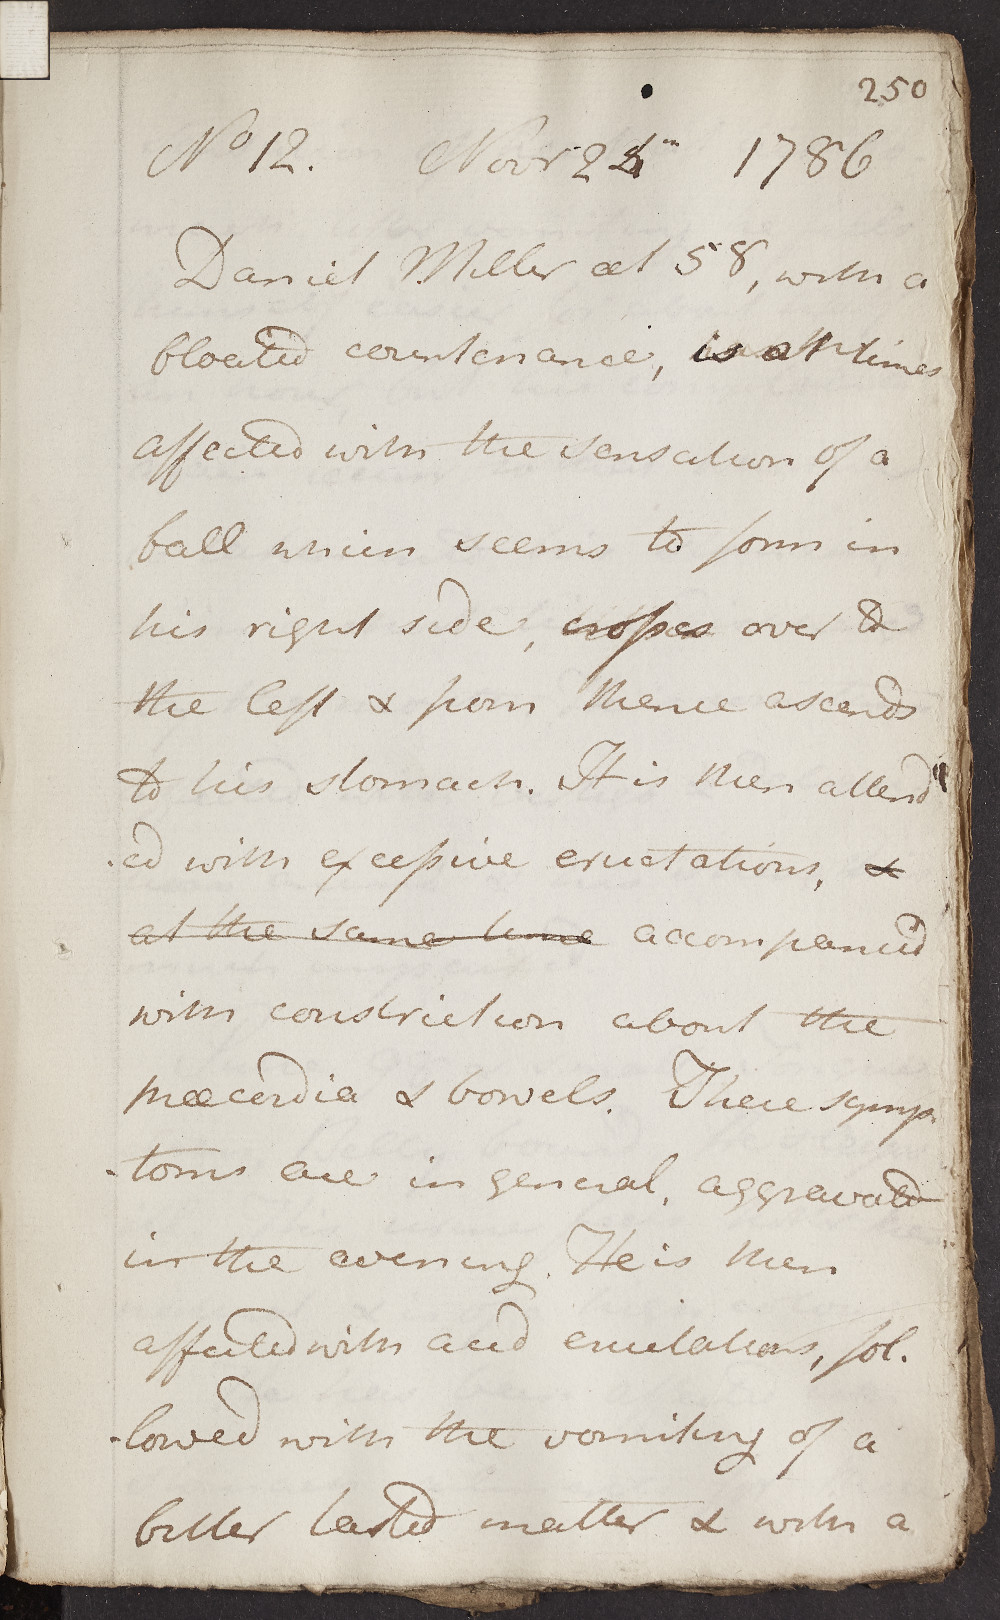 250
No 12. Novr 24th 1786
Daniel Miller æt 58, with a
bloated countenance, is at times
affected with the sensation of a
ball which seems to form in
his right side, crosses over to
the left & from thence ascends
to his stomach. It is then attend
-ed with excessive eructations, &
at the same time accompanied
with constriction about the
præcordia & bowels. These symp-
-toms are in general, aggravated
in the evening. He is then
affected with acid eructations, fol-
-lowed with the vomiting of a
bitter tasted matter & with a